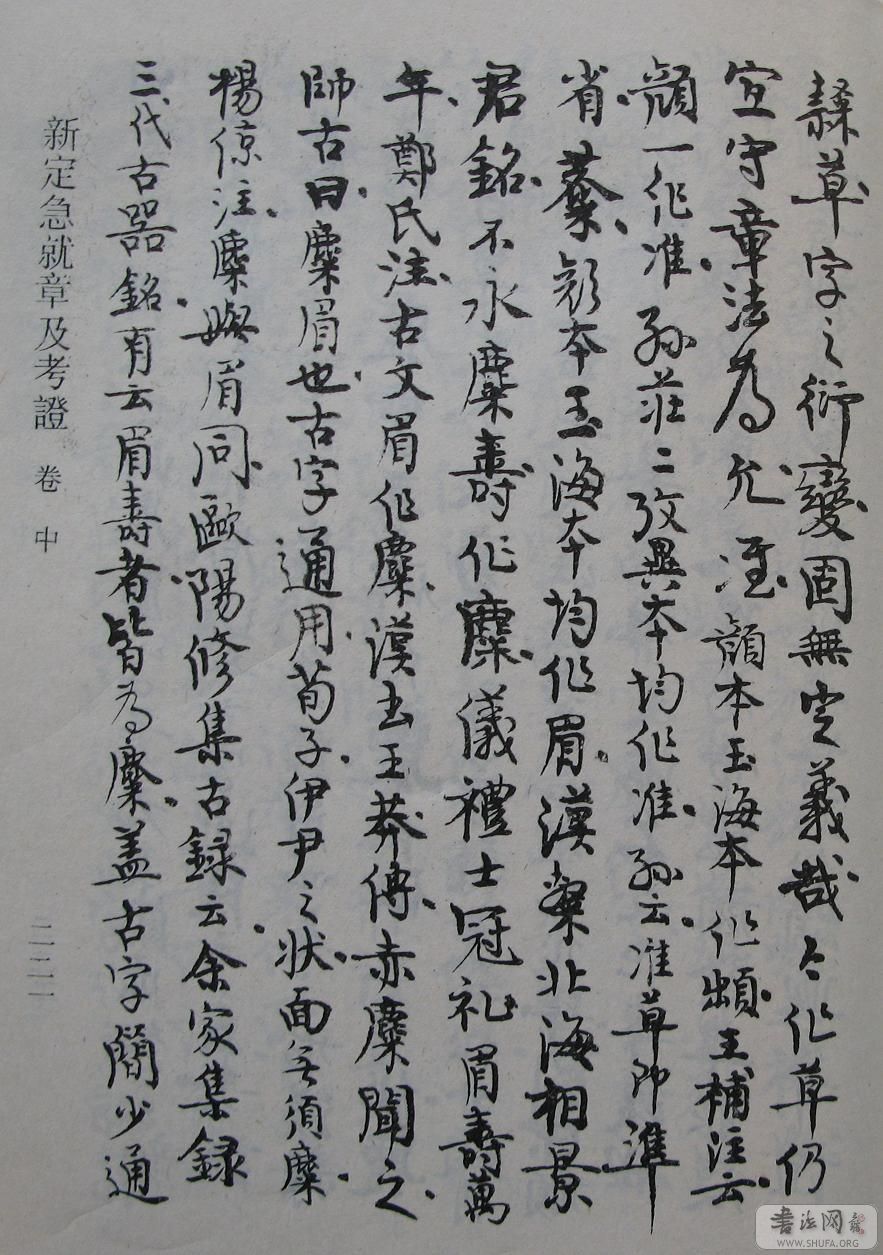 隸草字之衍變固無定義哉今作草仍
宜守章法為允准顏本玉海本作頗王補注云
顏一作准孫莊二攷異本均作准孫云准草即準
省麋顏本玉海本均作眉漢北海相景
君銘不永麋壽作麋儀禮士冠礼眉壽萬
年鄭氏注古文眉作麋漢書王莽傳赤麋聞之
師古曰麋眉也古字通用荀子伊尹之狀面無須麋
楊倞注麋與眉同歐陽修集古録云余家集録
三代古器銘有云眉壽者皆為麋蓋古字簡少通
新定急就章及考證 卷中
二二一
書法网
WWW.SHUFA.ORG